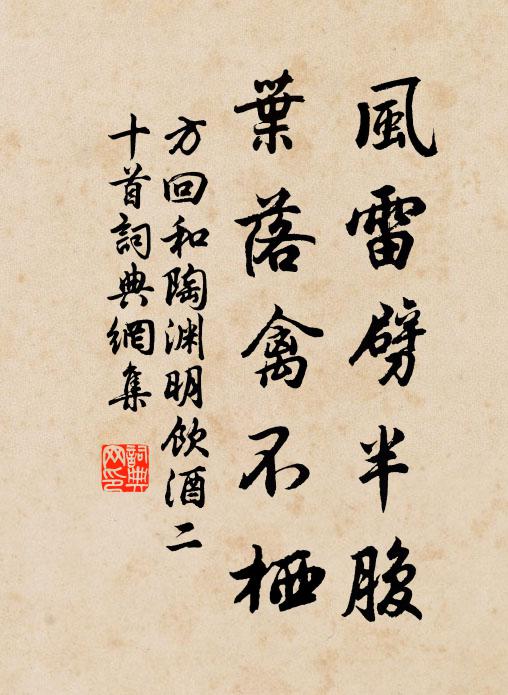 風雷劈半腹
葉落禽不栖
方回和陶渊明飲酒二
十首詞典網集
詞典
网印